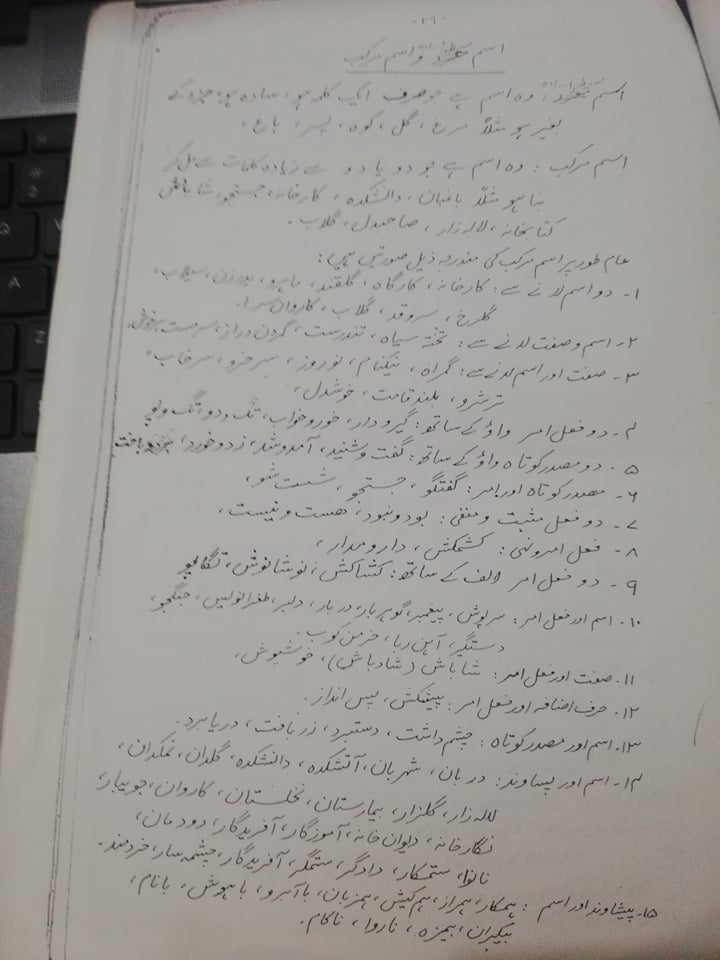 -۲۹-
اسم سادہ و اسم مرکب
اسم سادہ : وہ اسم ہے جو صرف ایک کلمہ ہو، سادہ ہو، جزء کے
بغیر ہو مثلاً مرغ، گل، کوہ، پسر، باغ،
اسم مرکب : وہ اسم ہے جو دو یا دو سے زیادہ کلمات سے مل کر
بنا ہو مثلاً باغبان، دانشکدہ، کارخانہ، جستجو، شاباش
کتابخانہ، لالہ زار، صاحبدل، گلاب۔
عام طور پر اسم مرکب کی مندرجہ ذیل صورتیں ہیں:
۱- دو اسم لانے سے: کارخانہ، کارگاہ، گلقند، ماہرو، پدرزن، سیلاب،
گلرخ، سروقد، گلاب، کاروان سرا۔
۲- اسم و صفت لانے سے: تختہ سیاہ، تندرست، گردن دراز، سرمست،
۳- صفت اور اسم لانے سے: گمراہ، نیکنام، نوروز، سبزہ، سرخاب،
ترشرو، بلند قامت، خوشدل،
۴- دو فعل امر واؤ کے ساتھ: گیرودار، خوروخواب، تگ و دو، تگ و پو
۵- دو مصدر کوتاہ واؤ کے ساتھ: گفت و شنید، آمدوشد، زدوخورد،
۶- مصدر کوتاہ اور امر: گفتگو، جستجو، شست شو،
۷- دو فعل مثبت و منفی: بودونبود، هست و نیست،
۸- فعل امر و نہی: کشمکش، دارومدار،
۹- دو فعل امر الف کے ساتھ: کشاکش، نوشانوش، تگاپو
۱۰- اسم اور فعل امر: سرپوش، پیغمبر، گوہربار، دربار، دلبر، طغرانویس، جنگجو،
دستگیر، آہن ربا، خرمن کوب۔
۱۱- صفت اور فعل امر: شاباش (شادباش)، خوشپوش،
۱۲- حرف اضافہ اور فعل امر: پیشکش، پس انداز۔
۱۳- اسم اور مصدر کوتاہ: چشم داشت، دستبرد، زربافت، دریابرد۔
۱۴- اسم اور پساوند: دربان، شہربان، آتشکدہ، دانشکدہ، گلدان، نمکدان،
لالہ زار، گلزار، بیمارستان، نخلستان، کاروان، جویبار،
نگارخانہ، دیوان خانہ، آموزگار، آفریدگار، دودمان،
نانوا، ستمکار، دادگر، ستمگر، آفریدگار، چشمہ سار، خردمند۔
۱۵- پیشاوند اور اسم : ہمکار، ہمراز، ہم کیش، ہمزبان، باآبرو، باہوش، بانام،
بیکران، بیمزہ، ناروا، ناکام۔